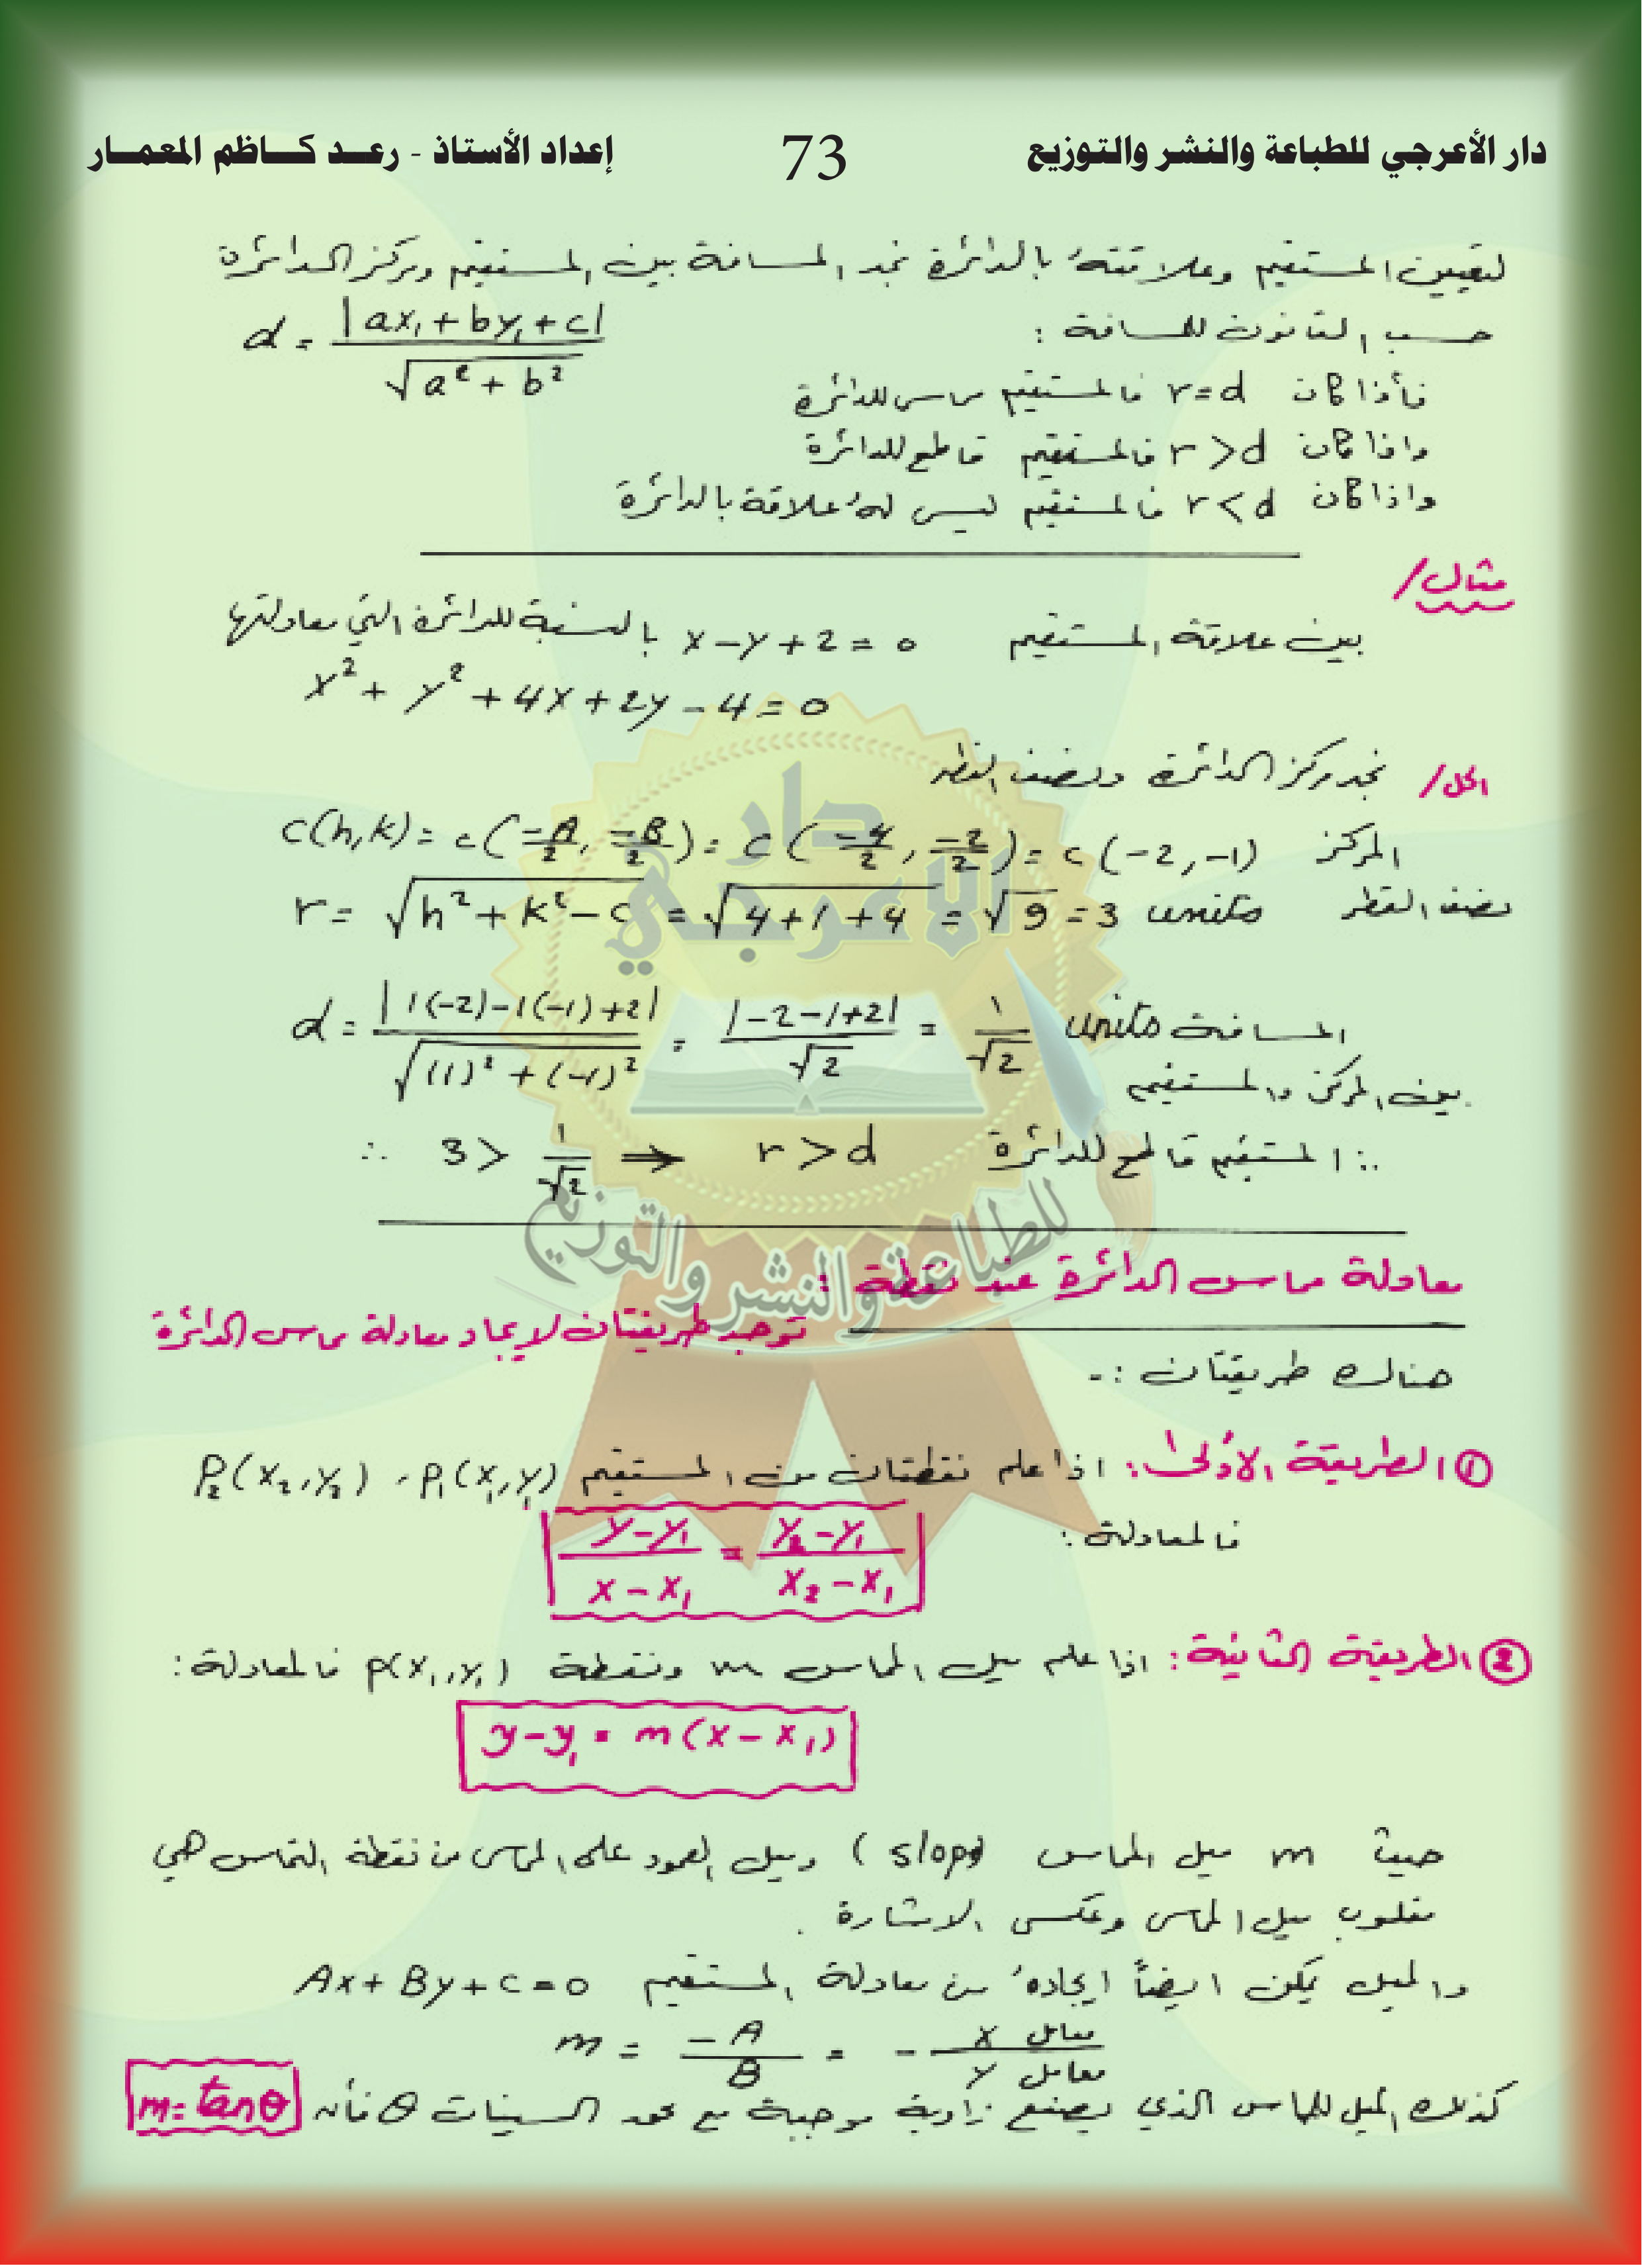 دار الأعرجي للطباعة والنشر والتوزيع 73 إعداد الأستاذ - رعد كاظم المعمار
لتعيين المستقيم وعلاقتهُ بالدائرة نجد المسافة بين المستقيم ومركز الدائرة
حسب القانون للمسافة : d = |ax₁ + by₁ + c| / √(a² + b²)
فأذا كان r = d فالمستقيم مماس للدائرة
واذا كان r > d فالمستقيم قاطع للدائرة
واذا كان r < d فالمستقيم ليس لهُ علاقة بالدائرة
مثال /
بين علاقة المستقيم x - y + 2 = 0 بالنسبة للدائرة التي معادلتها
x² + y² + 4x + 2y - 4 = 0
الحل / نجد مركز الدائرة ونصف القطر
المركز c(h,k) = c(-A/2, -B/2) = c(-4/2, -2/2) = c(-2,-1)
نصف القطر r = √(h² + k² - c) = √(4+1+4) = √9 = 3 units
المسافة d = |1(-2)-1(-1)+2| / √((1)² + (-1)²) = |-2-1+2| / √2 = 1/√2 units
بين المركز والمستقيم
∴ المستقيم قاطع للدائرة ∴ 3 > 1/√2 ⇒ r > d
دار الأعرجي
للطباعة والنشر والتوزيع
معادلة مماس الدائرة عند نقطة :
توجد طريقتان لايجاد معادلة مماس الدائرة
هناك طريقتان :-
① الطريقة الأولى : اذا علم نقطتان من المستقيم P₁(x₁,y₁) ، P₂(x₂,y₂)
فالمعادلة : (y-y₁)/(x-x₁) = (y₂-y₁)/(x₂-x₁)
② الطريقة الثانية : اذا علم ميل المماس m ونقطة P(x₁,y₁) فالمعادلة :
y-y₁ = m(x-x₁)
حيث m ميل المماس (slope) وميل العمود على المماس من نقطة التماس هي
مقلوب ميل المماس وعكس الاشارة .
والميل يمكن ايضاً ايجادهُ من معادلة المستقيم Ax + By + c = 0
m = -A/B = - معامل x / معامل y
كذلك الميل للمماس الذي يصنع زاوية موجبة مع محور السينات θ فأن m = tanθ